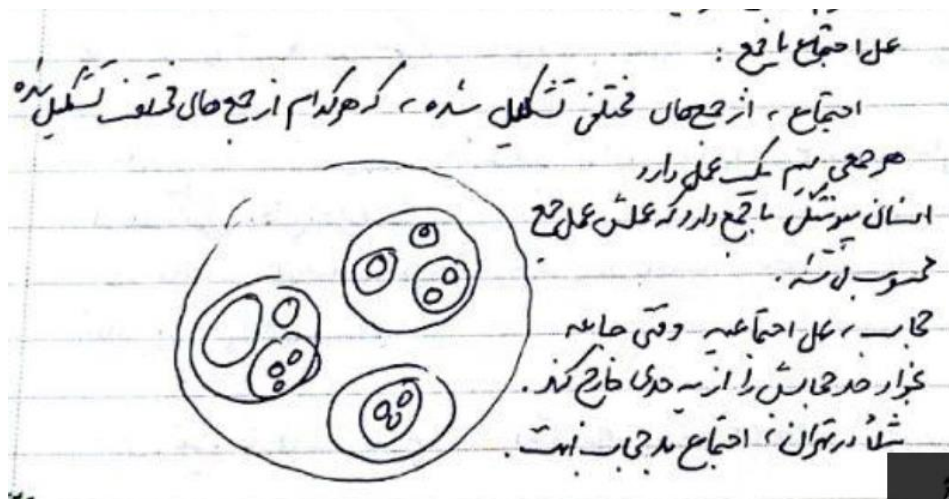 عمل اجتماع یا جمع :
اجتماع، از جمع‌های مختلفی تشکیل شده، که هرکدام از جمع‌های مختلف تشکیل شده
هر جمعی هم یک عمل دارد
انسان با جمع دارد که عملش عمل جمع
محسوب
حجاب، عمل اجتماعیه وقتی جامعه
نذار حد حجابش را از یه حدی خارج کند.
مثلاً در تهران، اجتماع بدحجاب است.